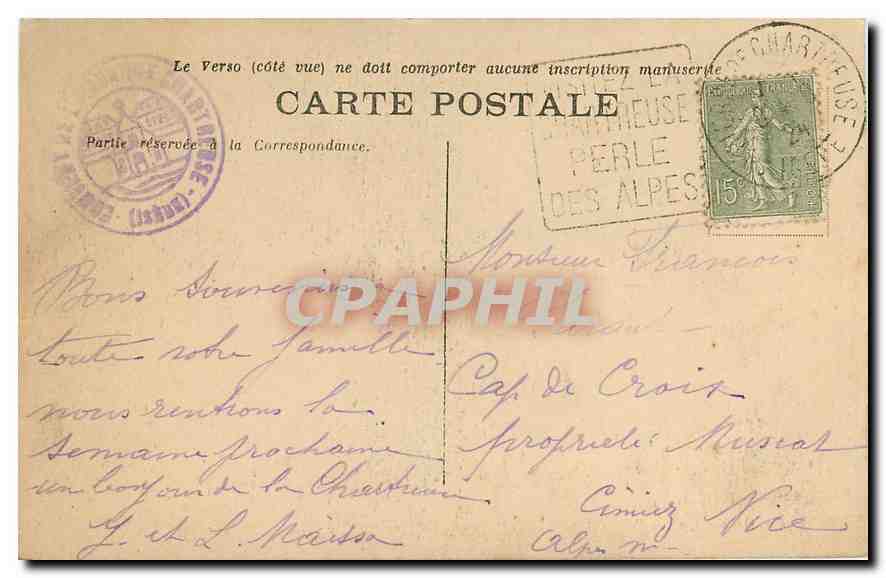 Le Verso (côté vue) ne doit comporter aucune inscription manuscrite
CARTE POSTALE
Partie réservée à la Correspondance.
VISITEZ LA
CHARTREUSE
PERLE
DES ALPES
CHARTREUSE
REPUBLIQUE FRANÇAISE
15c
POSTES
CPAPHIL
Bons souvenirs a
toute votre famille
nous rentrons la
semaine prochaine
un bonjour de la Chartreuse
Y. et L. Maissa
Monsieur François
Cap de Croix
propriété Muscat
Cimiez Nice
Alpes m